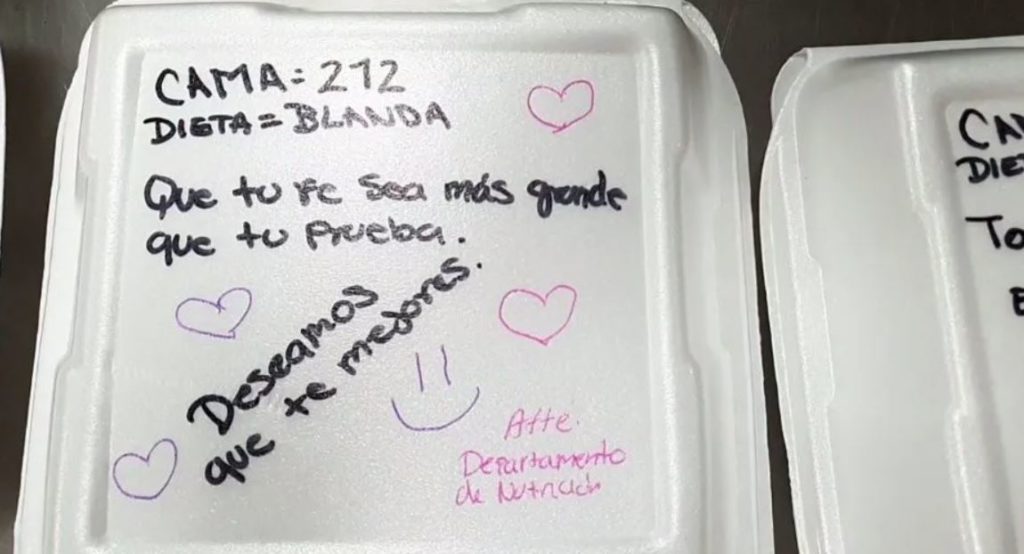 CAMA = 212
DIETA = BLANDA
Que tu Fe Sea más grande
que tu Prueba.
Deseamos
que te mejores.
Atte.
Departamento
de Nutrición
CA
DIE
To
E